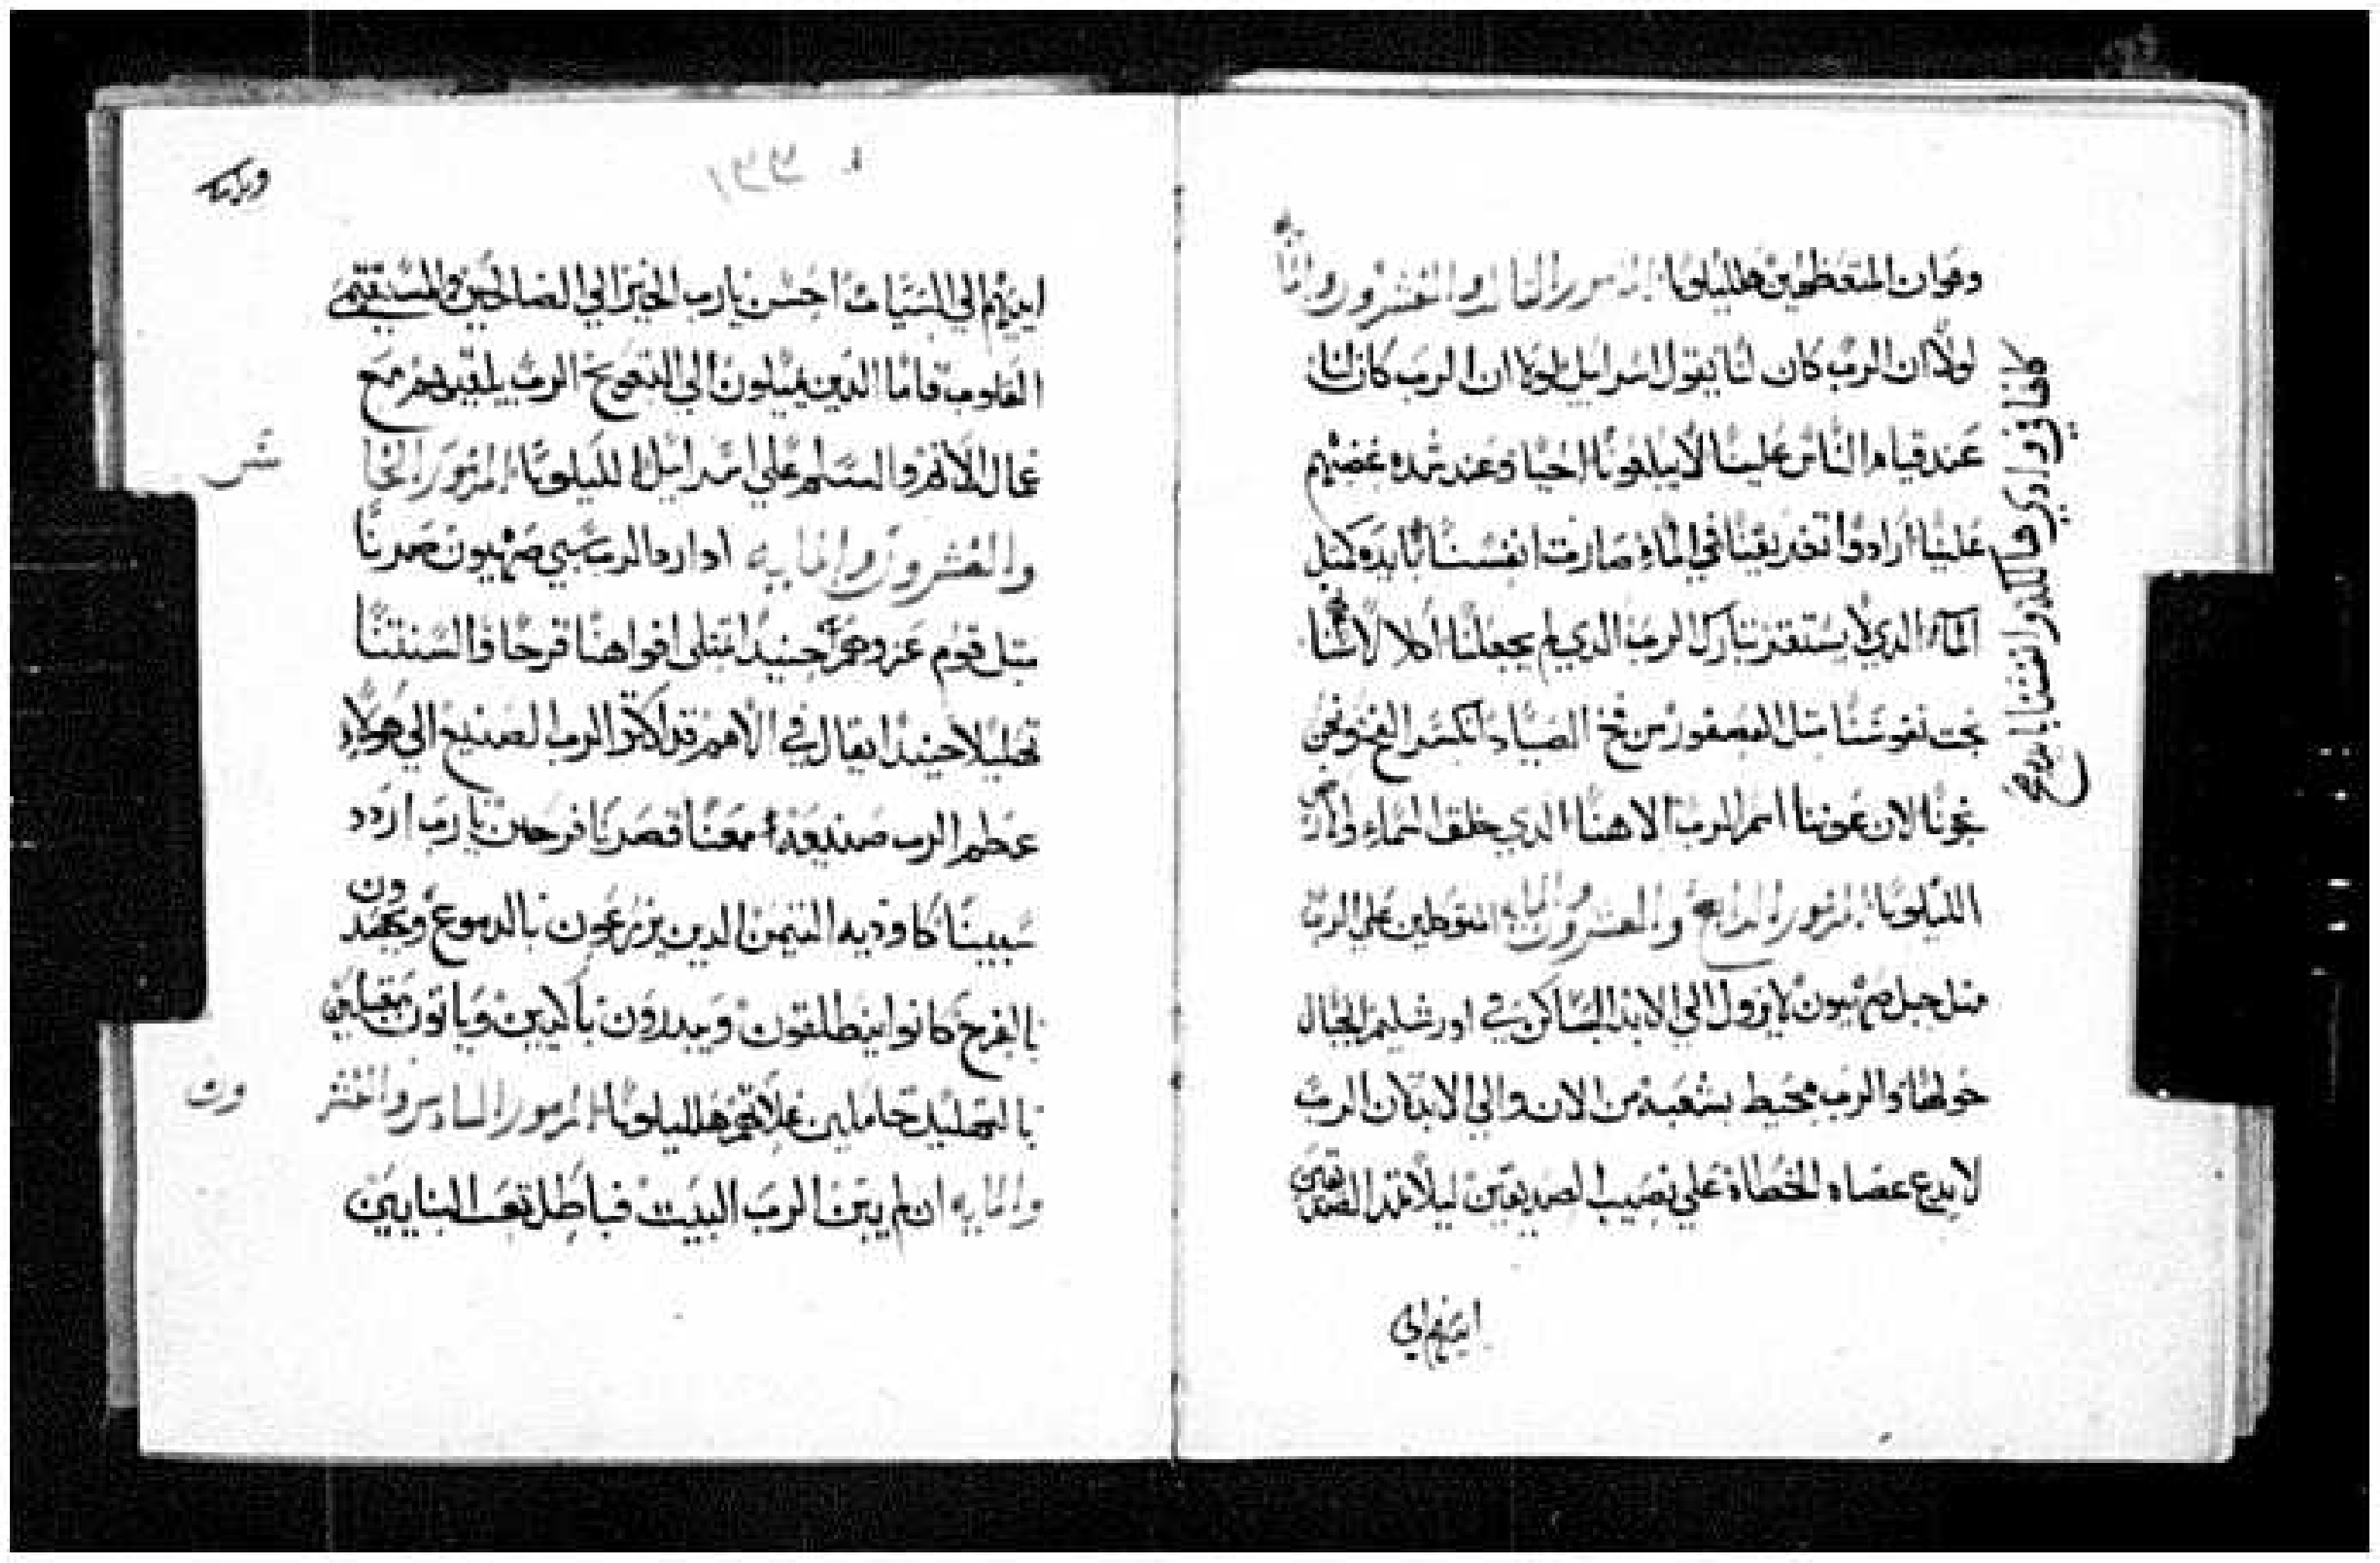 وهوان المتعظمين هلليلويا المزمور الثالث والعشرون واماية
لولا ان الرب كان لنا يقول اسراييل لولا ان الرب كان لنا
عند قيام الناس علينا لابتلعونا احيا وعند شده غضبهم
علينا ارادوا تغريقنا في الماء صارت انفسنا بايده كمثل
الماء الذي لا يستقر تبارك الرب الدي لم يجعلنا اكلا لاسنا
نجت نفوسنا متل العصفور من فخ الصياد انكسر الفخ ونحن
نجونا لان عوننا اسم الرب الاهنا الدي خلق السماء والارض
الليلويا المزمور الرابع والعشرون واماية المتوكلين علي الرب
متل جبل صهيون لا يزول الي الابد الساكن في اورشليم الجبال
حولها والرب محيط بشعبه من الان والي الابد لان الرب
لا يدع عصاه الخطاة علي نصيب الصديقين ليلا تمد الصديقين
ايديهم الي
كافا
وانغشنا
١٣٣
ايديهم الي السيات احسن يارب الخير الي الصالحين والمستقيمي
القلوب فاما الدين يميلون الي التعويج الرب يلقيهم مع
عمال الاثم والسلم علي اسراييل الليلويا المزمور الخا
والعشرون واماية ادا رد الرب سبي صهيون صرنا
متل قوم عزو حينيدا متلي افواهنا فرحا والسنتنا
تهليلا حينيدا يقال في الامم قد اكثر الرب الصنيع الي هولاء
عظم الرب صنيعه معنا فصرنا فرحين يارب اردد
سبينا كاوديه التيمن الدين يزرعون بالدموع ويحصدون
بالفرح كانوا ينطلقون ويبدرون باكيين وياتون مقبلين
بالتهليل حاملين غلاتهم هلليلويا المزمور السادس والعشر
واماية ان لم يبن الرب البيت فباطل تعب البنايين
ون